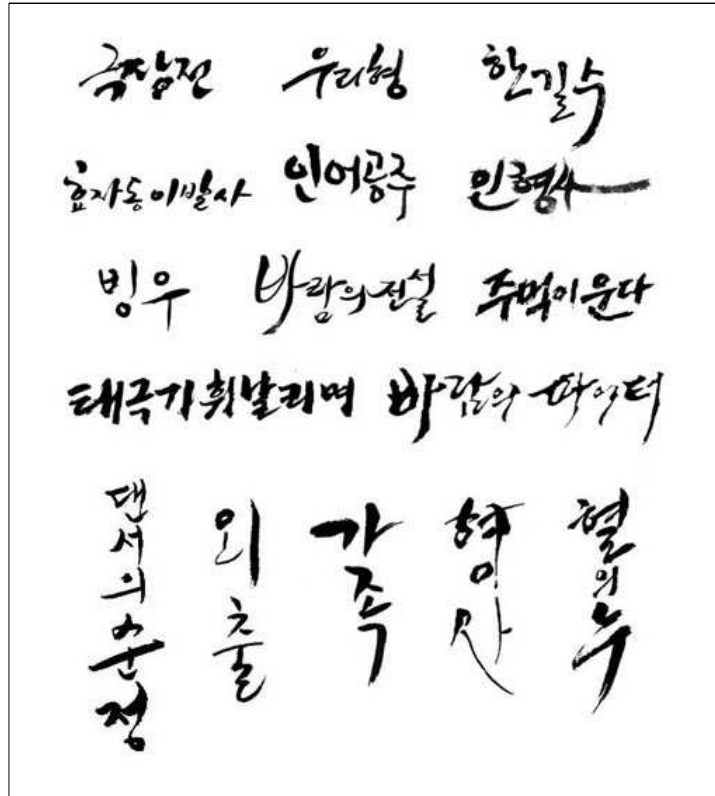 극장전 우리형 한길수
효자동이발사 인어공주 인형사
빙우 바람의전설 주먹이운다
태극기휘날리며 바람의 파이터
댄서의순정
외출
가족
형사
혈의누